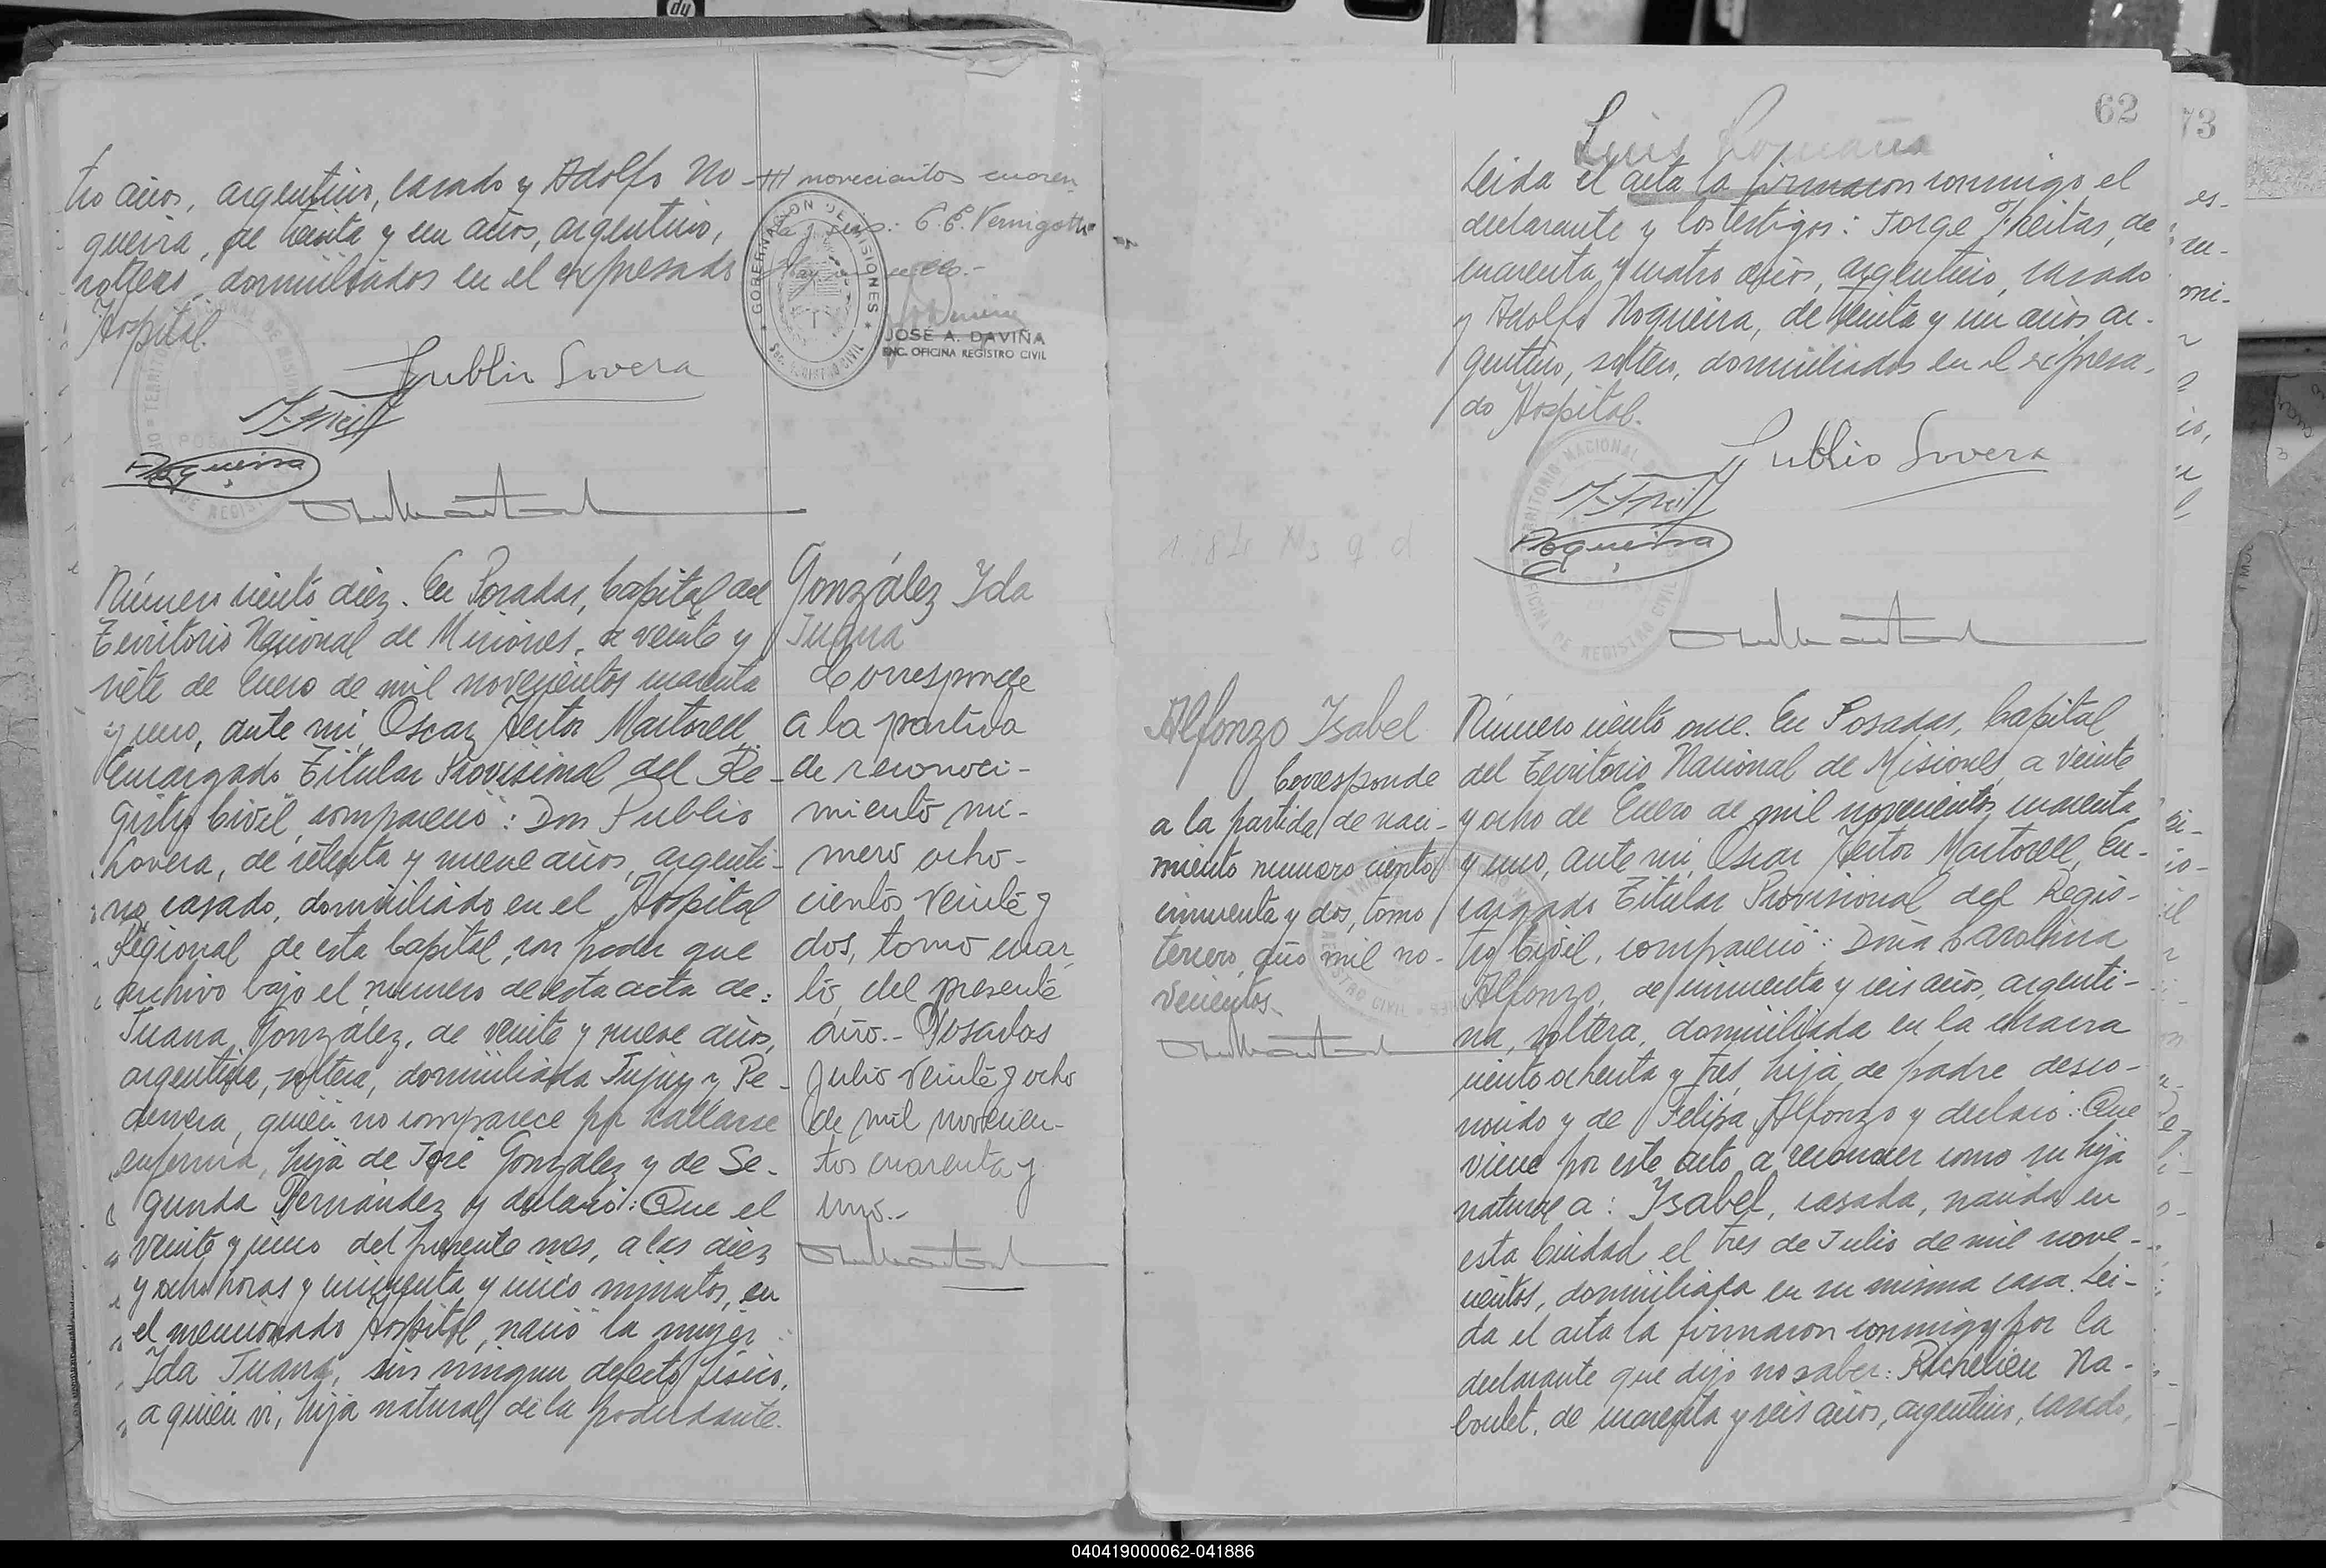 tro años, argentino, casado y Adolfo No-
gueira, de treinta y un años, argentino,
soltero, domiciliados en el expresado
Hospital.
Publio Lovera
J. Freit
Nogueira
/// novecientos cuaren
ta y uno: C. E. Vernigotti
GOBERNACION DE MISIONES
JOSÉ A. DAVIÑA
ENC. OFICINA REGISTRO CIVIL
Número ciento diez. En Posadas, Capital del
Territorio Nacional de Misiones, a veinte y
siete de Enero de mil novecientos cuarenta
y uno, ante mi, Oscar Héctor Martorell
Encargado Titular Provisional del Re-
gistro Civil, compareció: Don Publio
Lovera, de setenta y nueve años, argenti-
no, casado, domiciliado en el Hospital
Regional de esta Capital, con poder que
archivo bajo el número de esta acta de:
Juana González, de veinte y nueve años,
argentina, soltera, domiciliada Jujuy y Pe-
dernera, quien no comparece por hallarse
enferma, hija de José González y de Se-
gunda Fernández y declaró: Que el
veinte y cinco del presente mes, a las diez
y ocho horas y cincuenta y cinco minutos, en
el mencionado Hospital, nació la mujer
Ida Juana, sin ningun defecto físico,
a quién ví, hija natural de la poderdante.
González Ida
Juana
Corresponde
a la partida
de reconoci-
miento nú-
mero ocho-
cientos veinte y
dos, tomo cuar
to, del presente
año.- Posadas
Julio veinte y ocho
de mil novecien-
tos cuarenta y
uno.-
62
73
Luis
Leida el acta la firmaron conmigo el
declarante y los testigos: Jorge Freitas, de
cuarenta y cuatro años, argentino, casado
y Adolfo Nogueira, de treinta y un años ar-
gentino, soltero, domiciliados en el expresa-
do Hospital.
Publio Lovera
J. Freit
Nogueira
Alfonzo Isabel
Corresponde
a la partida de naci-
miento numero ciento
cincuenta y dos, tomo
tercero, año mil no-
vecientos.
Número ciento once. En Posadas, Capital
del Territorio Nacional de Misiones, a veinte
y ocho de Enero de mil novecientos cuarenta
y uno, ante mi, Oscar Héctor Martorell, En-
cargado Titular Provisional del Regis-
tro Civil, compareció: Doña Carolina
Alfonzo, de cincuenta y seis años, argenti-
na, soltera, domiciliada en la chacra
ciento ochenta y tres, hija de padre desco-
nocido y de Felipa Alfonzo y declaró: Que
viene por este acto a reconocer como su hija
natural a: Isabel, casada, nacida en
esta Ciudad el tres de Julio de mil nove-
cientos, domiciliada en su misma casa. Lei-
da el acta la firmaron conmigo y por la
declarante que dijo no saber: Richelieu Na-
boulet, de cuarenta y seis años, argentino, casado,
040419000062-041886